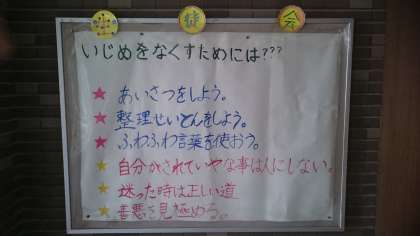 特 会
いじめをなくすためには???
★ あいさつをしよう。
★ 整理せいとんをしよう。
★ ふわふわ言葉を使おう。
★ 自分がされていやな事は人にしない。
★ 迷った時は正しい道
★ 善悪を見極める。